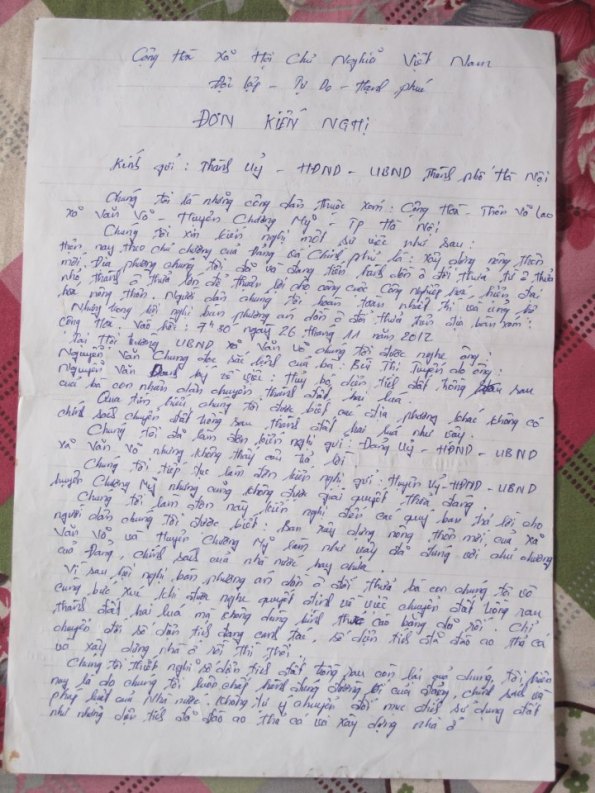 Cộng Hòa Xã Hội Chủ Nghĩa Việt Nam
Độc lập - Tự Do - Hạnh phúc
ĐƠN KIẾN NGHỊ
Kính gửi: Thành Uỷ - HĐND - UBND Thành phố Hà Nội
Chúng tôi là những công dân thuộc xóm: Cộng Hoà - Thôn Võ Lao
xã Văn Võ - Huyện Chương Mỹ - TP Hà Nội
Chúng tôi xin kiến nghị một sự việc như sau:
Hiện nay theo chủ chương của Đảng và Chính phủ là: Xây dựng nông thôn
mới. Địa phương chúng tôi đã và đang tiến hành dồn ô đổi thửa từ ô thửa
nhỏ thành ô thửa lớn để thuận lợi cho công cuộc Công nghiệp hoá, hiện đại
hoá nông thôn. Người dân chúng tôi hoàn toàn nhất trí và ủng hộ
Nhưng trong hội nghị bàn phương án dồn ô đổi thửa trên địa bàn xóm:
Cộng Hoà. Vào hồi: 7h30 ngày 26 tháng 11 năm 2012
Tại Hội trường UBND xã Văn Võ chúng tôi được nghe ông:
Nguyễn Văn Chung đọc của bà: Bùi Thị Tuyến do ông:
Nguyễn Văn ký về việc: Huỷ bỏ diện tích đất trồng sau
của bà con nhân dân chuyển thành đất hai lúa.
Qua tìm hiểu chúng tôi được biết các địa phương khác không có
chính sách chuyển đất trồng sau thành đất hai luá như vậy.
Chúng tôi đã làm đơn kiến nghị gửi: Đảng Uỷ - HĐND - UBND
xã Văn Võ nhưng không thấy câu trả lời
Chúng tôi tiếp tục làm đơn kiến nghị gửi: Huyện Uỷ - HĐND - UBND
huyện Chương Mỹ nhưng cũng không được giải quyết thỏa đáng.
Chúng tôi làm đơn này kiến nghị đến các quý ban trả lời cho
người dân chúng tôi được biết: Ban xây dựng nông thôn mới của xã
Văn Võ và Huyện Chương Mỹ làm như vậy đã đúng với chủ chương
của Đảng, chính sách của nhà nước hay chưa.
Vì sau hội nghị bàn phương án dồn ô đổi thửa bà con chúng tôi vô
cùng bức xúc khi được nghe quyết định về việc chuyển đất trồng sau
thành đất hai luá mà không đúng hiện thực cao bằng đã rồi. Chỉ
chuyển đổi số diện tích đang canh tác, số diện tích đã đào ao thả cá
và xây dựng nhà ở rồi thì thôi.
Chúng tôi thiết nghĩ số diện tích đất trồng sau còn lại quá dúng, tới hiện
nay là do chúng tôi luôn chấp hành đúng đường lối của Đảng, chính sách và
pháp luật của Nhà nước: không tự ý chuyển đổi mục đích sử dụng đất
như những diện tích đã đào ao thả cá và xây dựng nhà ở